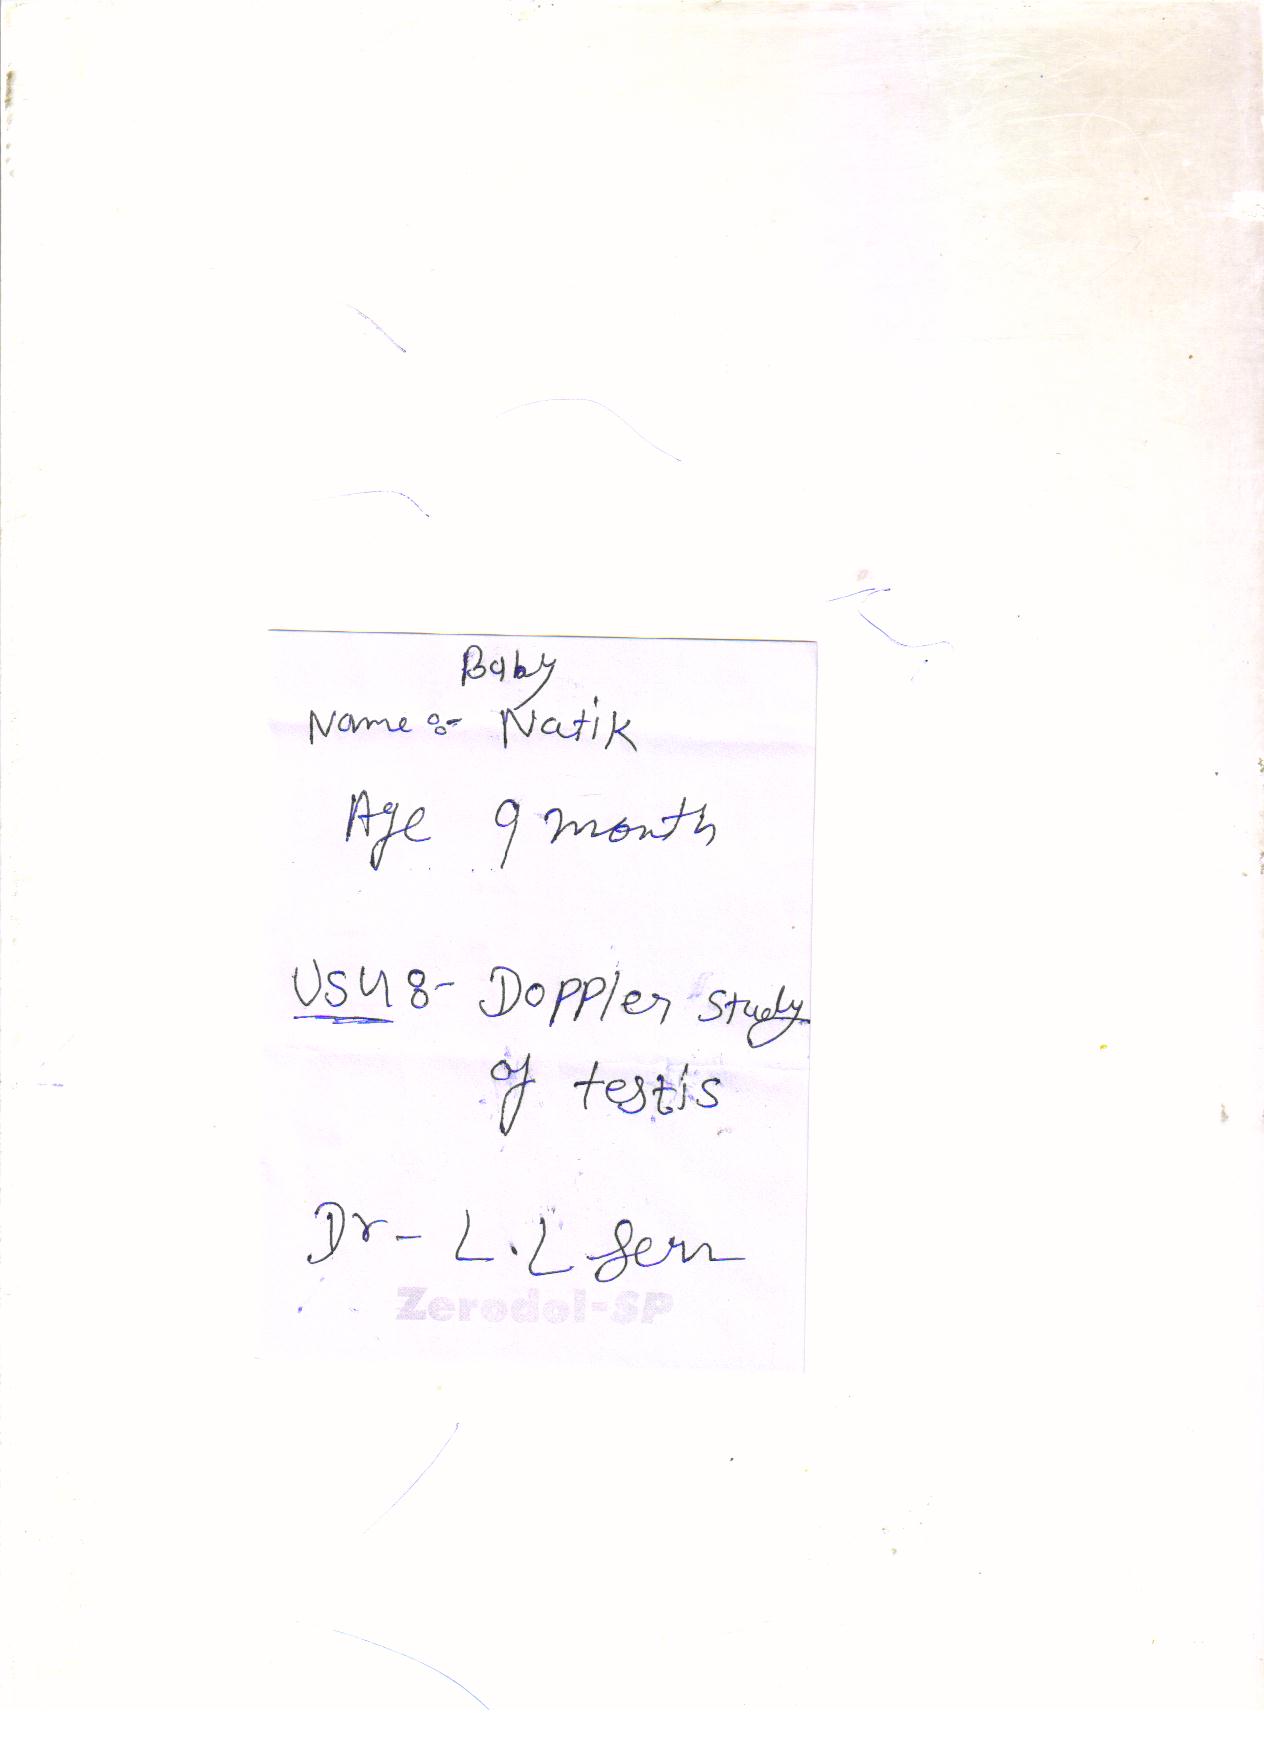 Baby
Name :- Natik
Age 9 month
USG :- Doppler study
of testis
Dr - L.L Sen
Zerodol-SP